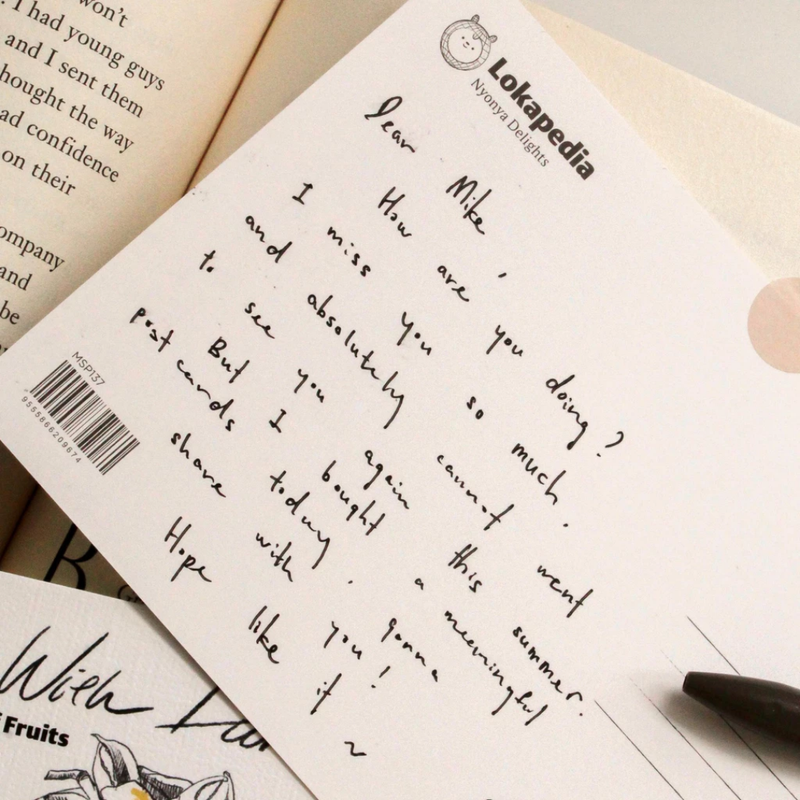 won't
. I had young guys
and I sent them
hought the way
ad confidence
on their
ompany
and
be
Lokapedia
Nyonya Delights
Dear Mike,
How are you doing?
I miss you so much.
and absolutely cannot went
to see you again this summer.
But I bought a meaningful
post cards today, gonna
share with you!
Hope like it ~
MSP137
9555866209674
With
Fruits